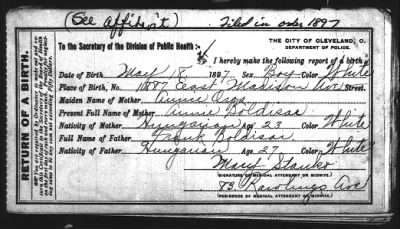 (See Affidavit) Filed in order 1897
THE CITY OF CLEVELAND, O.
DEPARTMENT OF POLICE.
To the Secretary of the Division of Public Health:
I hereby make the following report of a birth:
Date of Birth, May 18, 1897 Sex, Boy Color White
Place of Birth, No. 1887 East Madison Ave Street.
Maiden Name of Mother Annie
Present Full Name of Mother Annie Boldisar
Nativity of Mother Hungarian Age 23 Color White
Full Name of Father Frank Boldisar
Nativity of Father, Hungarian Age 27 Color White
Mary Stanko
(SIGNATURE OF MEDICAL ATTENDANT OR MIDWIFE.)
83 Rawlings Ave
(RESIDENCE OF MEDICAL ATTENDANT OR MIDWIFE.)
RETURN OF A BIRTH.